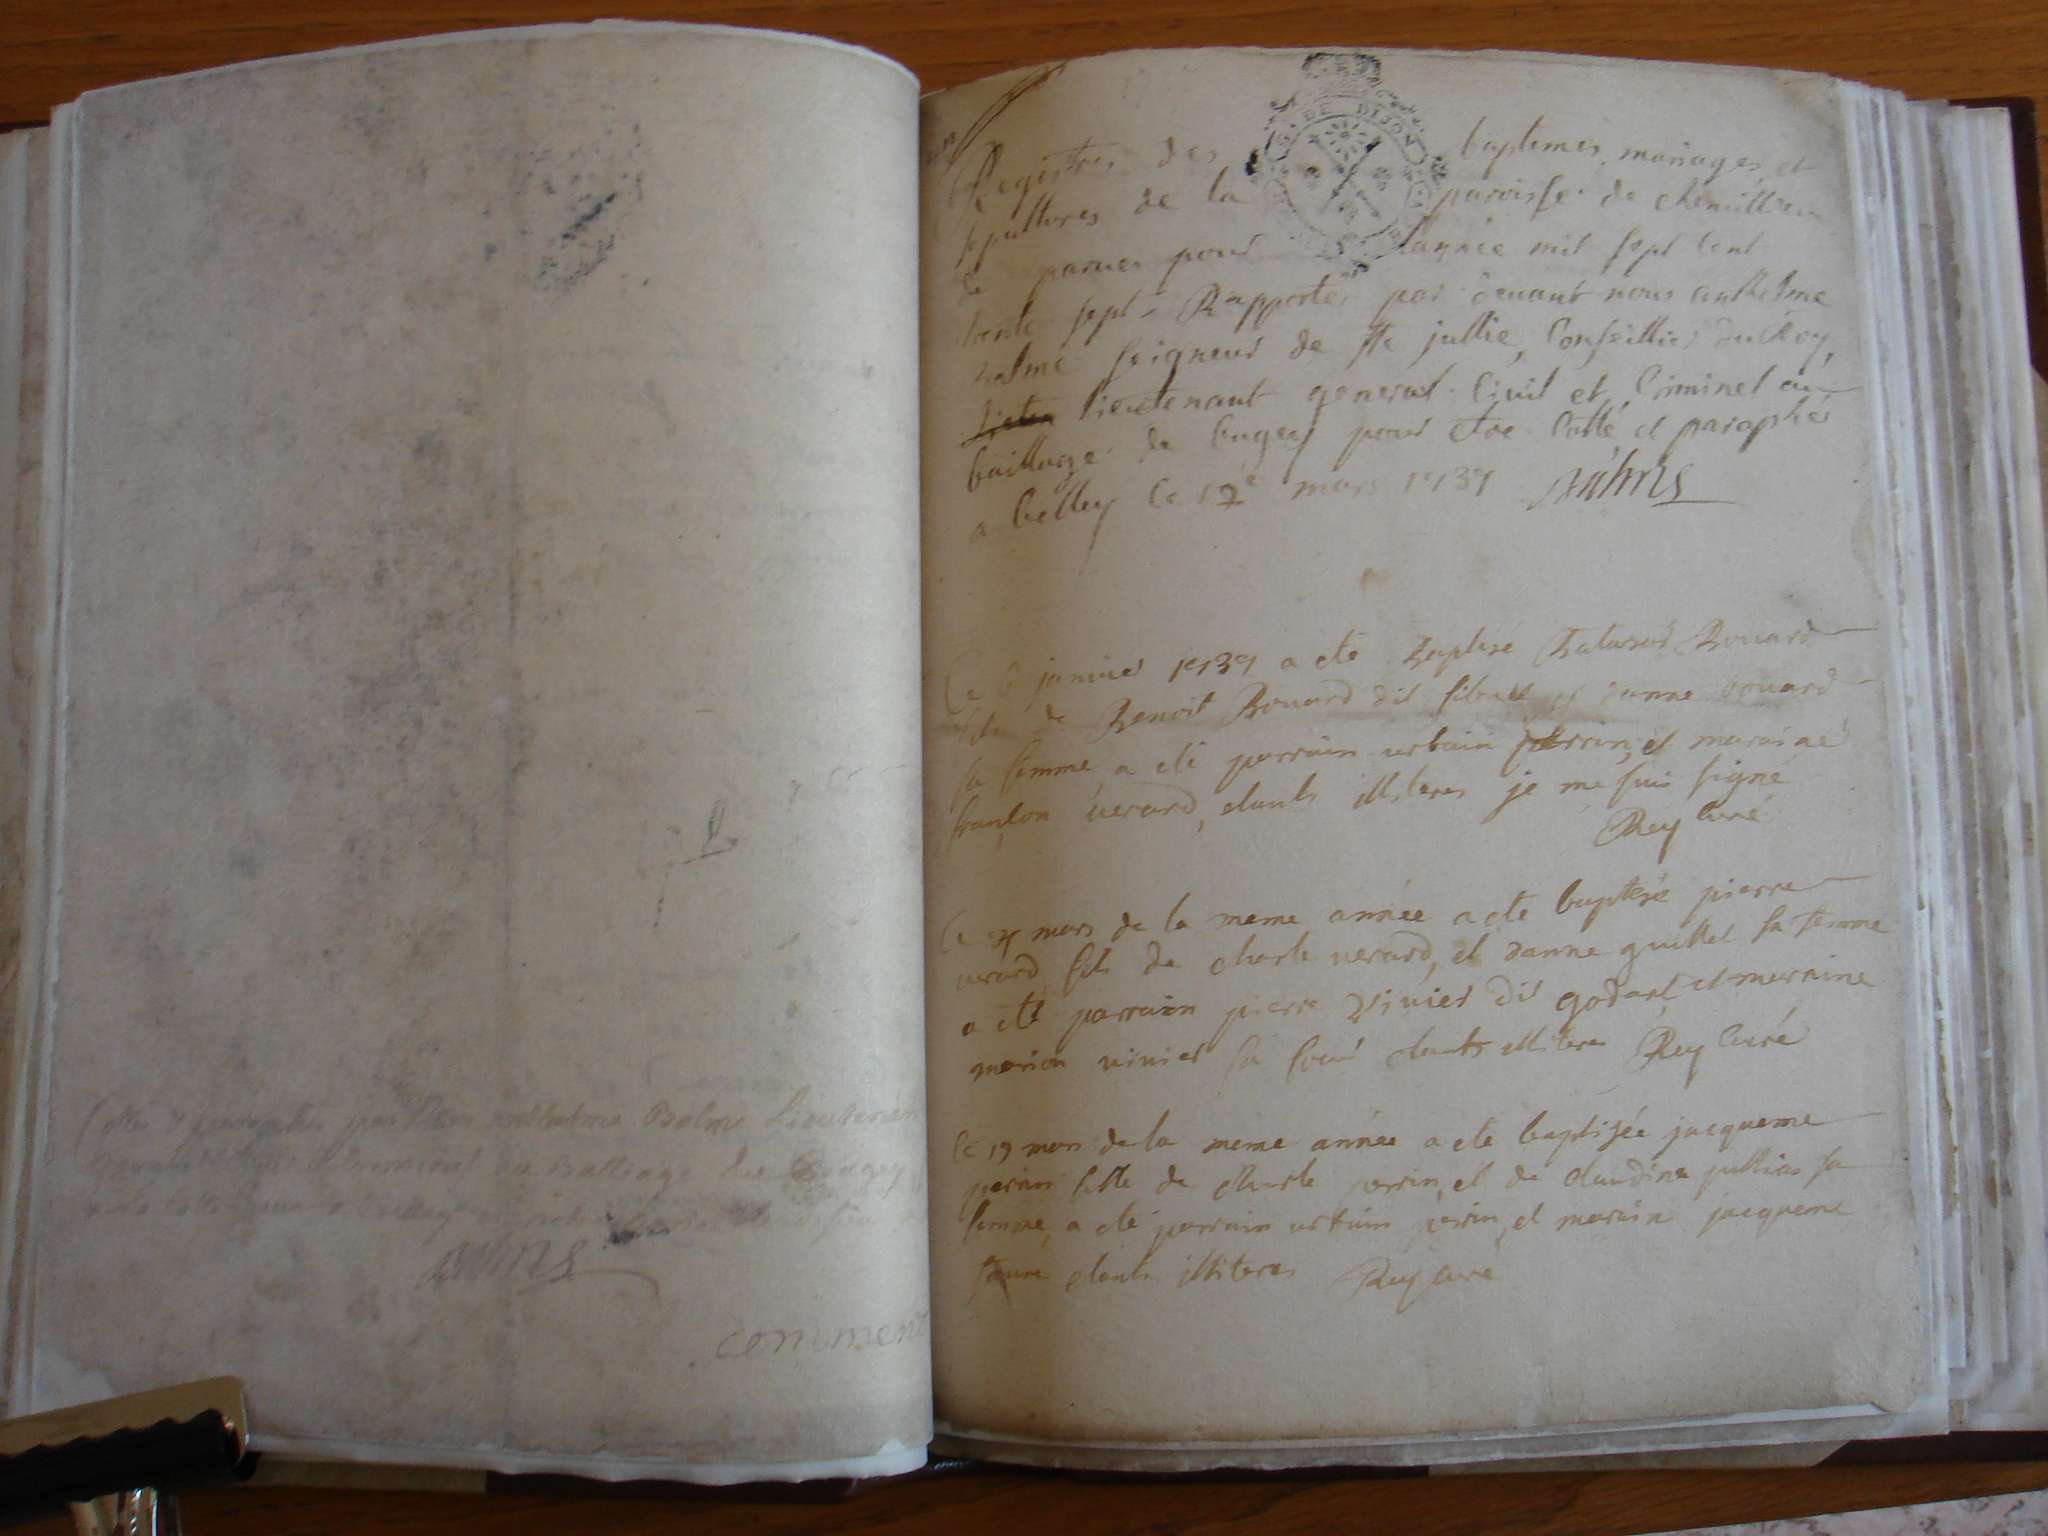 Cottés et paraphés par Nous anthelme Balme Lieutenan
General Civil et Criminel au Balliage de Bugey
Balme
comment
DE DIJON
Registres des baptemes, mariages, et
sepultures de la paroisse de chemillieu
de parues pour l'année mil sept cent
trente sept Rapportés par devant nous anthelme
balme seigneur de ste jullie, Conseillier du Roy,
lieutenant general Civil et Criminel au
baillage de bugey pour etre Cotté et paraphés
a belley le 12e mars 1737 Balme
Le 6 janvier 1737 a eté Baptisé Baltasard Bouard
fils de Benoit Bouard dit et Janne bouard
sa femme a eté parrain urbain perrin, et maraine
françon verard, etants illiteres je me suis signé
Rey Curé
Le mars de la meme année a eté baptisé pierre
verard fils de charle verard, et Janne guillet sa femme
a eté parrain pierre vivier dit godart, et marraine
marion vivier sa soeur etants illiteres Rey Curé
le 19 mars de la meme année a eté baptisée jacqueme
perrin fille de charle perrin, et de claudine jullian sa
femme, a eté parrain urbain perrin, et marain jacqueme
etants illiteres Rey Curé